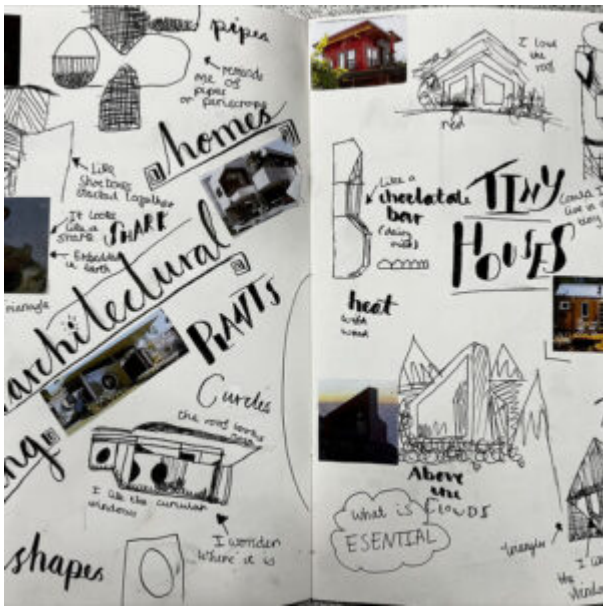 pipes
reminds
me of
pipes
or periscrope
homes
Like
Shoeboxes
stacked together
It looks
like a
shark SHARK
Embedded
in earth
triangle
architectural
PLANTS
ng
Circles
the roof looks
I like the circular
windows
I wonder
where it is
shapes
I love
the
roof
red
Like a
chocolate
bar
(dairy
milk)
TINY
HOUSES
Could I
live in a
tiny
heat
with
wood
Above
the
CLOUDS
what is
ESENTIAL
triangles
I like
the
window